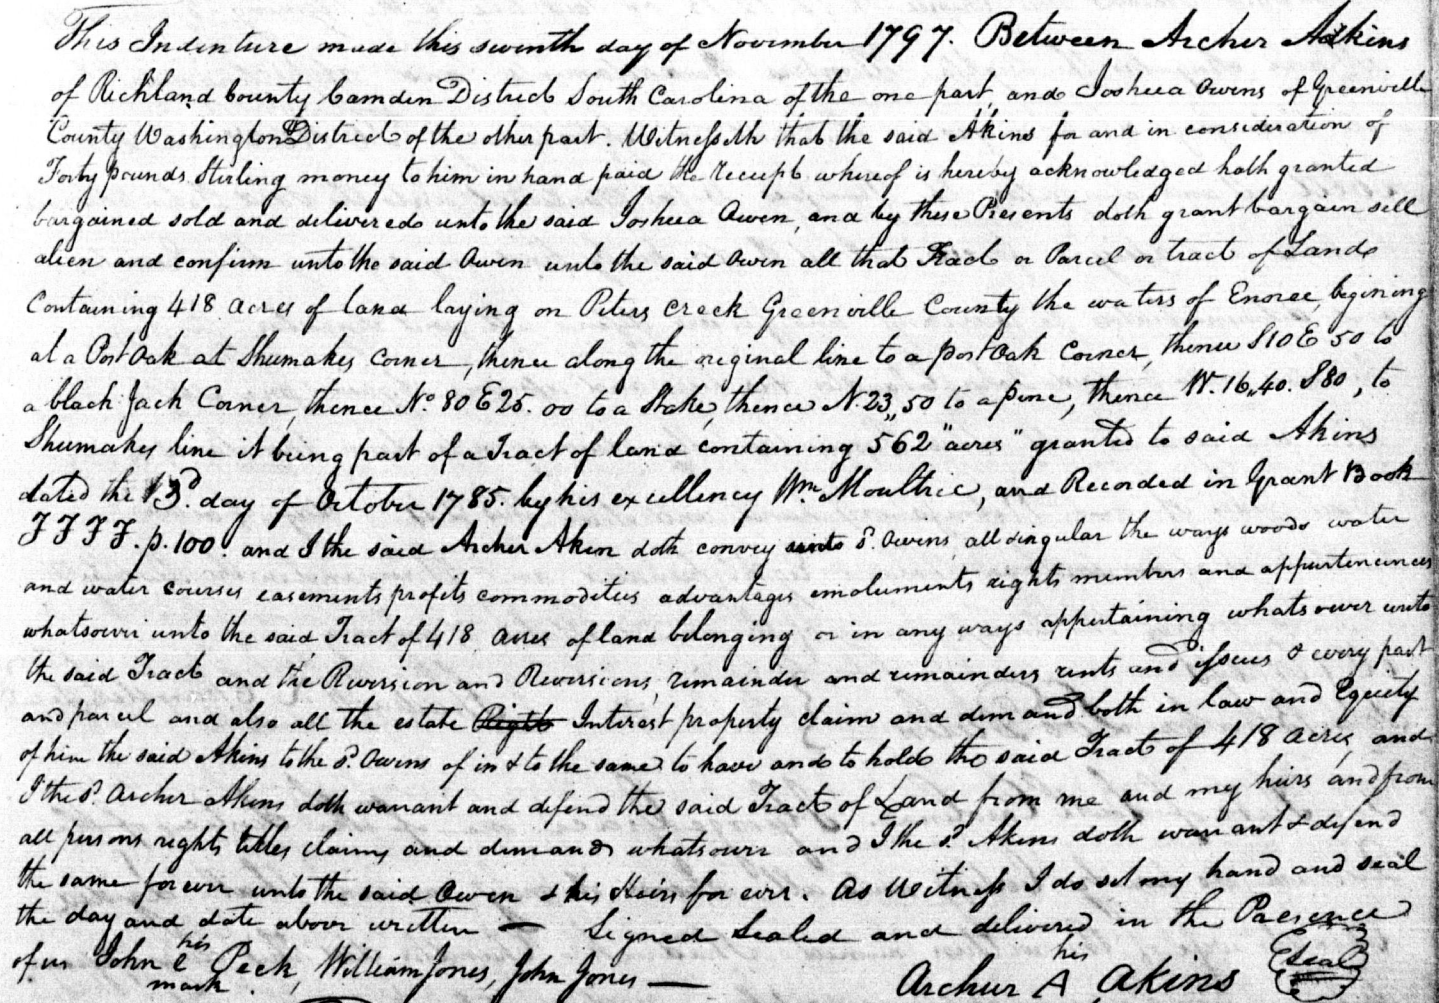 This Indenture made this seventh day of November 1797. Between Archer Adkins
of Richland County Camden District South Carolina of the one part, and Joshua Owens of Greenville
County Washington District of the other part. Witnesseth that the said Akins for and in consideration of
Forty pounds Sterling money to him in hand paid the receipt whereof is hereby acknowledged hath granted
bargained sold and delivered unto the said Joshua Owen, and by these Presents doth grant bargain sell
alien and confirm unto the said Owen unto the said Owen all that Tract or Parcel or tract of Land
Containing 418 acres of land laying on Peters Creek Greenville County the waters of Enoree, begining
at a Post Oak at Shumakes corner, thence along the original line to a post Oak Corner, thence S10E 50 to
a black Jack Corner, thence No. 80 E 25.00 to a Stake, thence N. 23,,50 to a pine, thence W. 16,,40. S80, to
Shumakes line it being part of a Tract of land containing 562 "acres" granted to said Akins
dated the 3d. day of October 1785. by his excellency Wm Moultrie, and Recorded in Grant Book
FFFF. p. 100. and I the said Archer Akin doth convey unto sd. Owens, all singular the ways woods water
and water courses easements profits commodities advantages emoluments rights members and appurtenences
whatsoever unto the said Tract of 418 acres of land belonging or in any ways appertaining whatsoever unto
the said Tract and the Reversion and Reversions, remainder and remainders rents and issues & every part
and parcel and also all the estate Right Interest property claim and demand both in law and Equity
of him the said Akins to the sd. Owens of in & to the same to have and to hold the said Tract of 418 acres, and
I the sd. Archer Akins doth warrant and defend the said Tract of Land from me and my heirs and from
all persons rights titles claims and demands whatsoever and I the sd. Akins doth warrant & defend
the same forever unto the said Owen & his Heirs for ever. As Witness I do set my hand and seal
the day and date above written — Signed Sealed and delivered in the Presence
of us John his C mark Peck, William Jones, John Jones — Archer his A Akins Seal